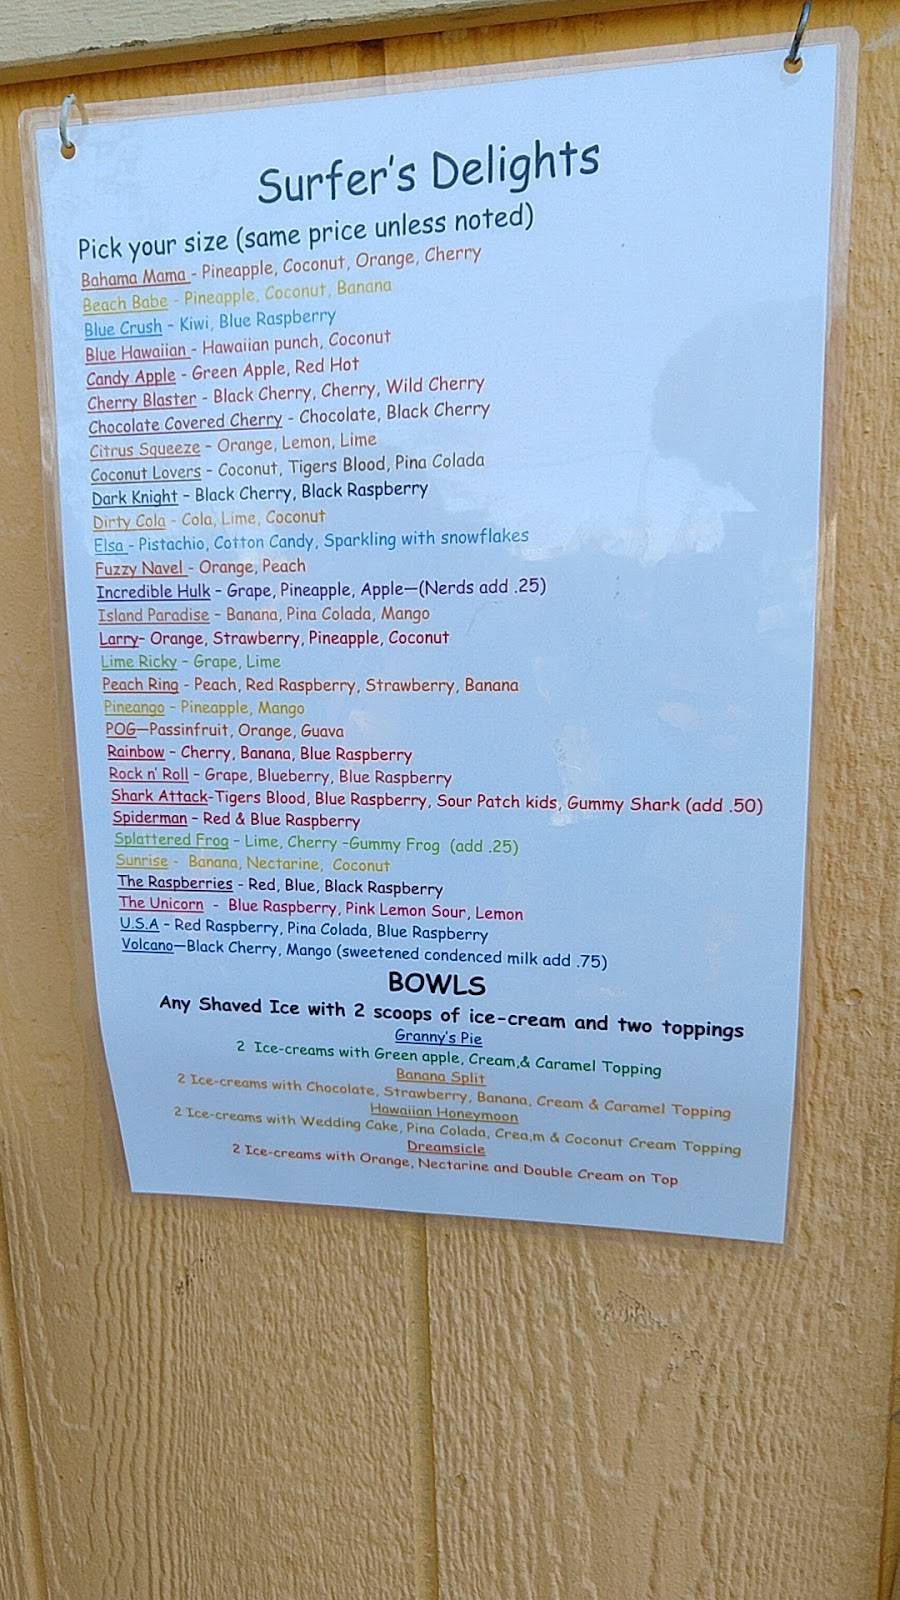 Surfer's Delights
Pick your size (same price unless noted)
Bahama Mama - Pineapple, Coconut, Orange, Cherry
Beach Babe - Pineapple, Coconut, Banana
Blue Crush - Kiwi, Blue Raspberry
Blue Hawaiian - Hawaiian punch, Coconut
Candy Apple - Green Apple, Red Hot
Cherry Blaster - Black Cherry, Cherry, Wild Cherry
Chocolate Covered Cherry - Chocolate, Black Cherry
Citrus Squeeze - Orange, Lemon, Lime
Coconut Lovers - Coconut, Tigers Blood, Pina Colada
Dark Knight - Black Cherry, Black Raspberry
Dirty Cola - Cola, Lime, Coconut
Elsa - Pistachio, Cotton Candy, Sparkling with snowflakes
Fuzzy Navel - Orange, Peach
Incredible Hulk - Grape, Pineapple, Apple—(Nerds add .25)
Island Paradise - Banana, Pina Colada, Mango
Larry- Orange, Strawberry, Pineapple, Coconut
Lime Ricky - Grape, Lime
Peach Ring - Peach, Red Raspberry, Strawberry, Banana
Pineango - Pineapple, Mango
POG—Passinfruit, Orange, Guava
Rainbow - Cherry, Banana, Blue Raspberry
Rock n' Roll - Grape, Blueberry, Blue Raspberry
Shark Attack-Tigers Blood, Blue Raspberry, Sour Patch kids, Gummy Shark (add .50)
Spiderman - Red & Blue Raspberry
Splattered Frog - Lime, Cherry -Gummy Frog (add .25)
Sunrise - Banana, Nectarine, Coconut
The Raspberries - Red, Blue, Black Raspberry
The Unicorn - Blue Raspberry, Pink Lemon Sour, Lemon
U.S.A - Red Raspberry, Pina Colada, Blue Raspberry
Volcano—Black Cherry, Mango (sweetened condenced milk add .75)
BOWLS
Any Shaved Ice with 2 scoops of ice-cream and two toppings
Granny's Pie
2 Ice-creams with Green apple, Cream,& Caramel Topping
Banana Split
2 Ice-creams with Chocolate, Strawberry, Banana, Cream & Caramel Topping
Hawaiian Honeymoon
2 Ice-creams with Wedding Cake, Pina Colada, Crea,m & Coconut Cream Topping
Dreamsicle
2 Ice-creams with Orange, Nectarine and Double Cream on Top